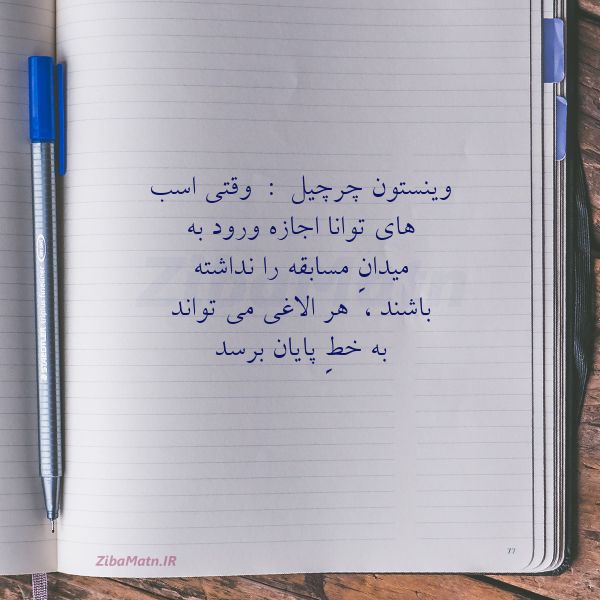 وینستون چرچیل : وقتی اسب
های توانا اجازه ورود به
میدانِ مسابقه را نداشته
باشند ، هر الاغی می تواند
به خطِ پایان برسد
ZibaMatn.IR
77